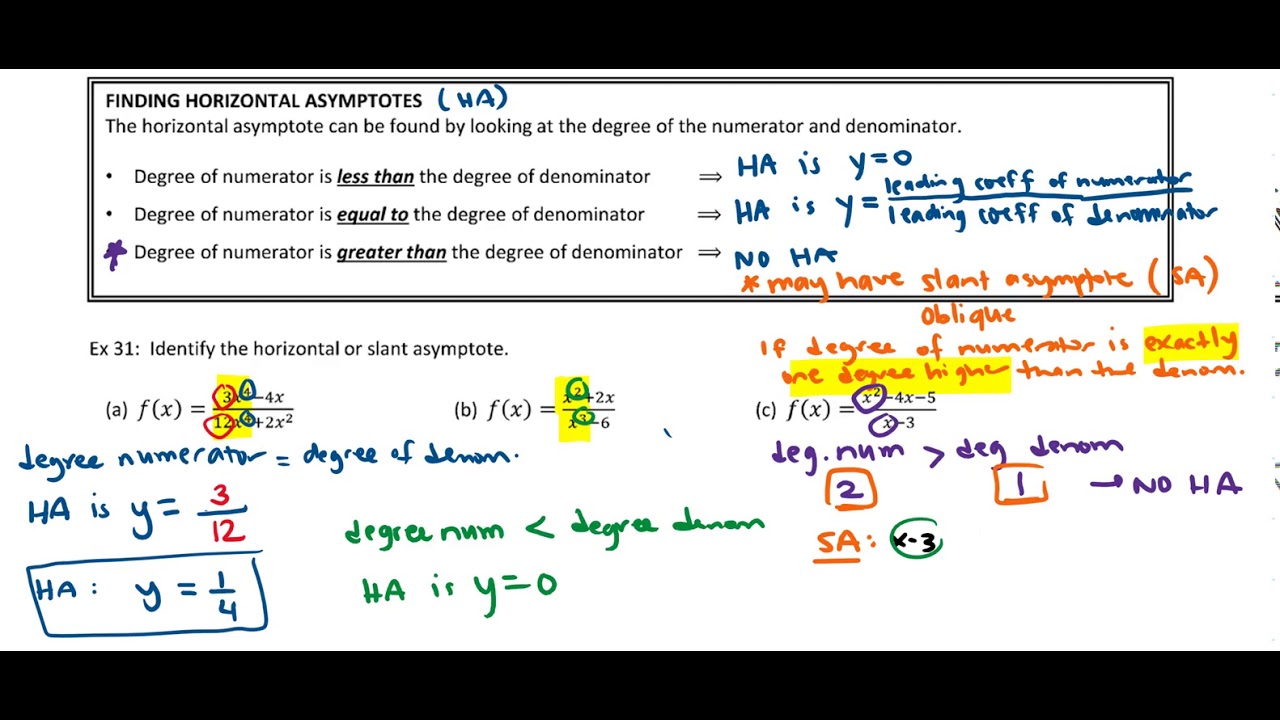 FINDING HORIZONTAL ASYMPTOTES (HA)
The horizontal asymptote can be found by looking at the degree of the numerator and denominator.
• Degree of numerator is less than the degree of denominator ⟹ HA is y=0
• Degree of numerator is equal to the degree of denominator ⟹ HA is y= leading coeff of numerator / leading coeff of denominator
Degree of numerator is greater than the degree of denominator ⟹ NO HA
* may have slant asymptote (SA)
oblique
If degree of numerator is exactly
one degree higher than the denom.
Ex 31: Identify the horizontal or slant asymptote.
(a) f(x) = (3x⁴−4x)/(12x⁴+2x²) (b) f(x) = (x²+2x)/(x³−6) (c) f(x) = (x²−4x−5)/(x−3)
degree numerator = degree of denom.
HA is y = 3/12
HA : y = 1/4
degree num < degree denom
HA is y=0
deg. num > deg denom
2 1 → NO HA
SA: x-3